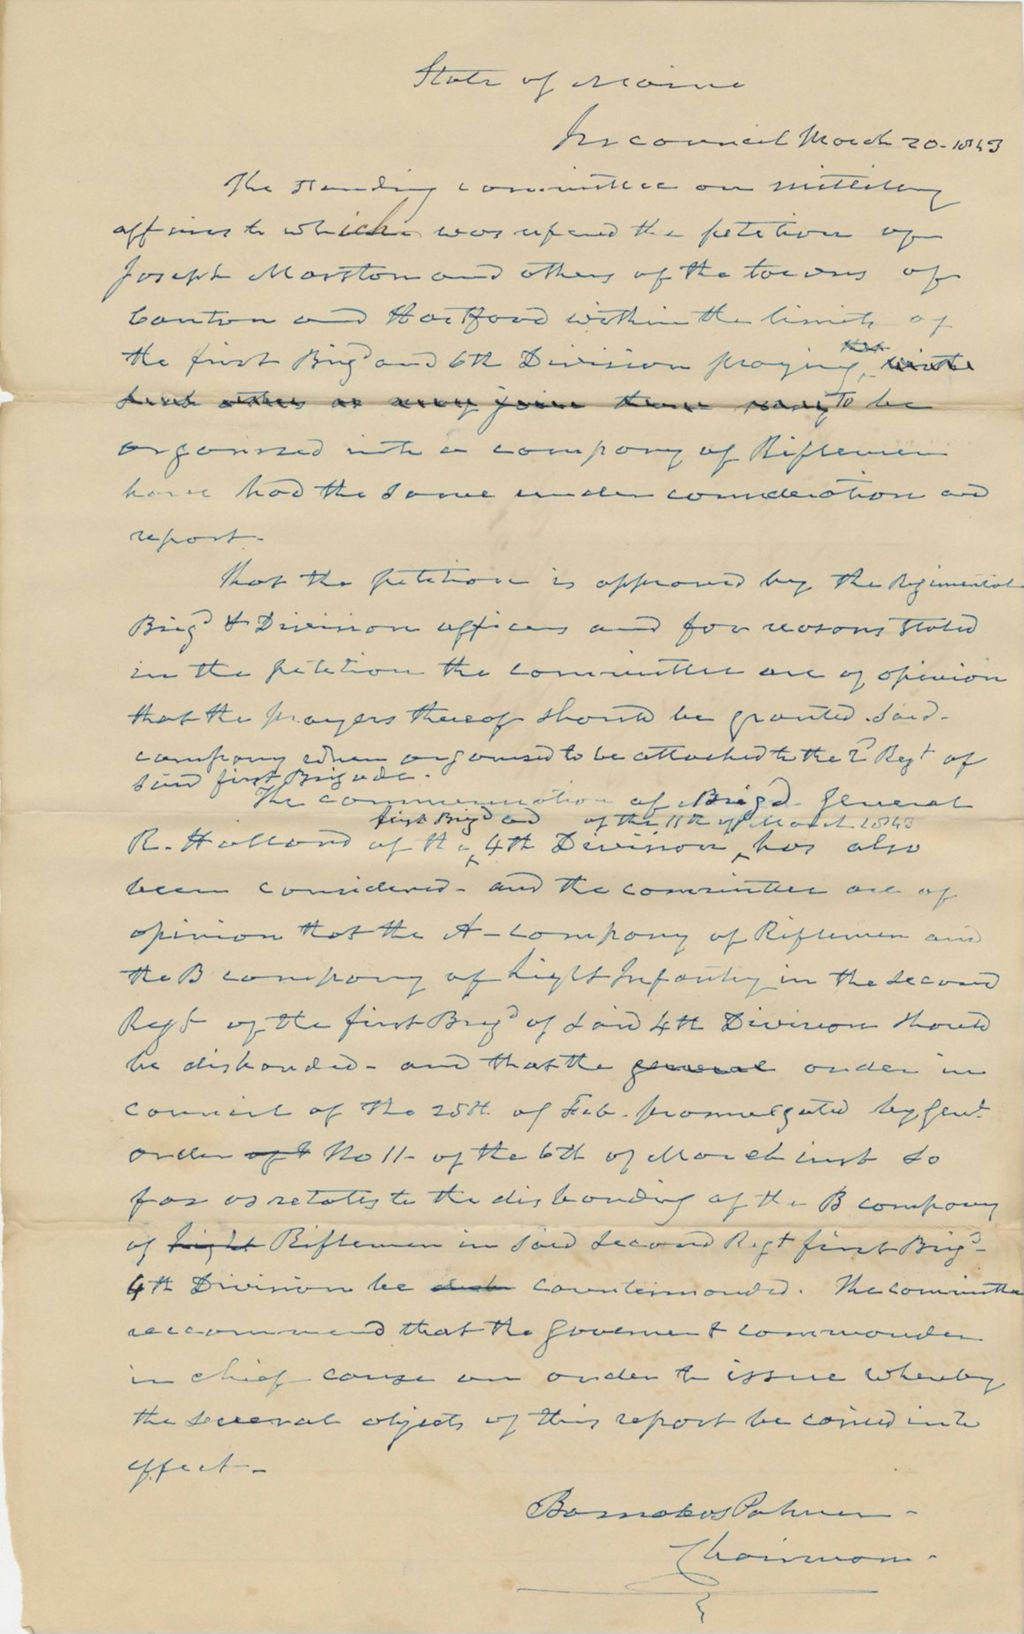 State of Maine
In council March 20-1843
The standing committee on military
affairs to which was refered the petition of
Joseph Marston and others of the towns of
Canton and Hartford within the limits of
the first Brigd and 6th Division praying
as may join them to be
organised into a company of Riflemen
have had the same under consideration and
report-
That the petition is approved by the Regimental
Brigd & Division officers and for reasons stated
in the petition the committee are of opinion
that the prayers thereof should be granted. Said-
company when organised to be attached to the 2d Regt of
said first Brigade.
The communication of Brigd- General
first Brigd and of the 11th of March 1843
R. Holland of the 4th Division, has also
been considered- and the committee are of
opinion that the A-company of Riflemen and
the B company of Light Infantry in the second
Regt of the first Brigd of said 4th Division should
be disbanded- and that the general order in
council of the 25th of Feb. promulgated by Genl
order of No 11- of the 6th of March inst so
far as relates to the disbanding of the B company
of Light Riflemen in said second Regt first Brigd-
4th Division be countermanded. The committee
reccommend that the Governer & commander
in chief cause an order to issue whereby
the several objects of this report be caried into
effect-
Barnabas Palmer-
Chairman-